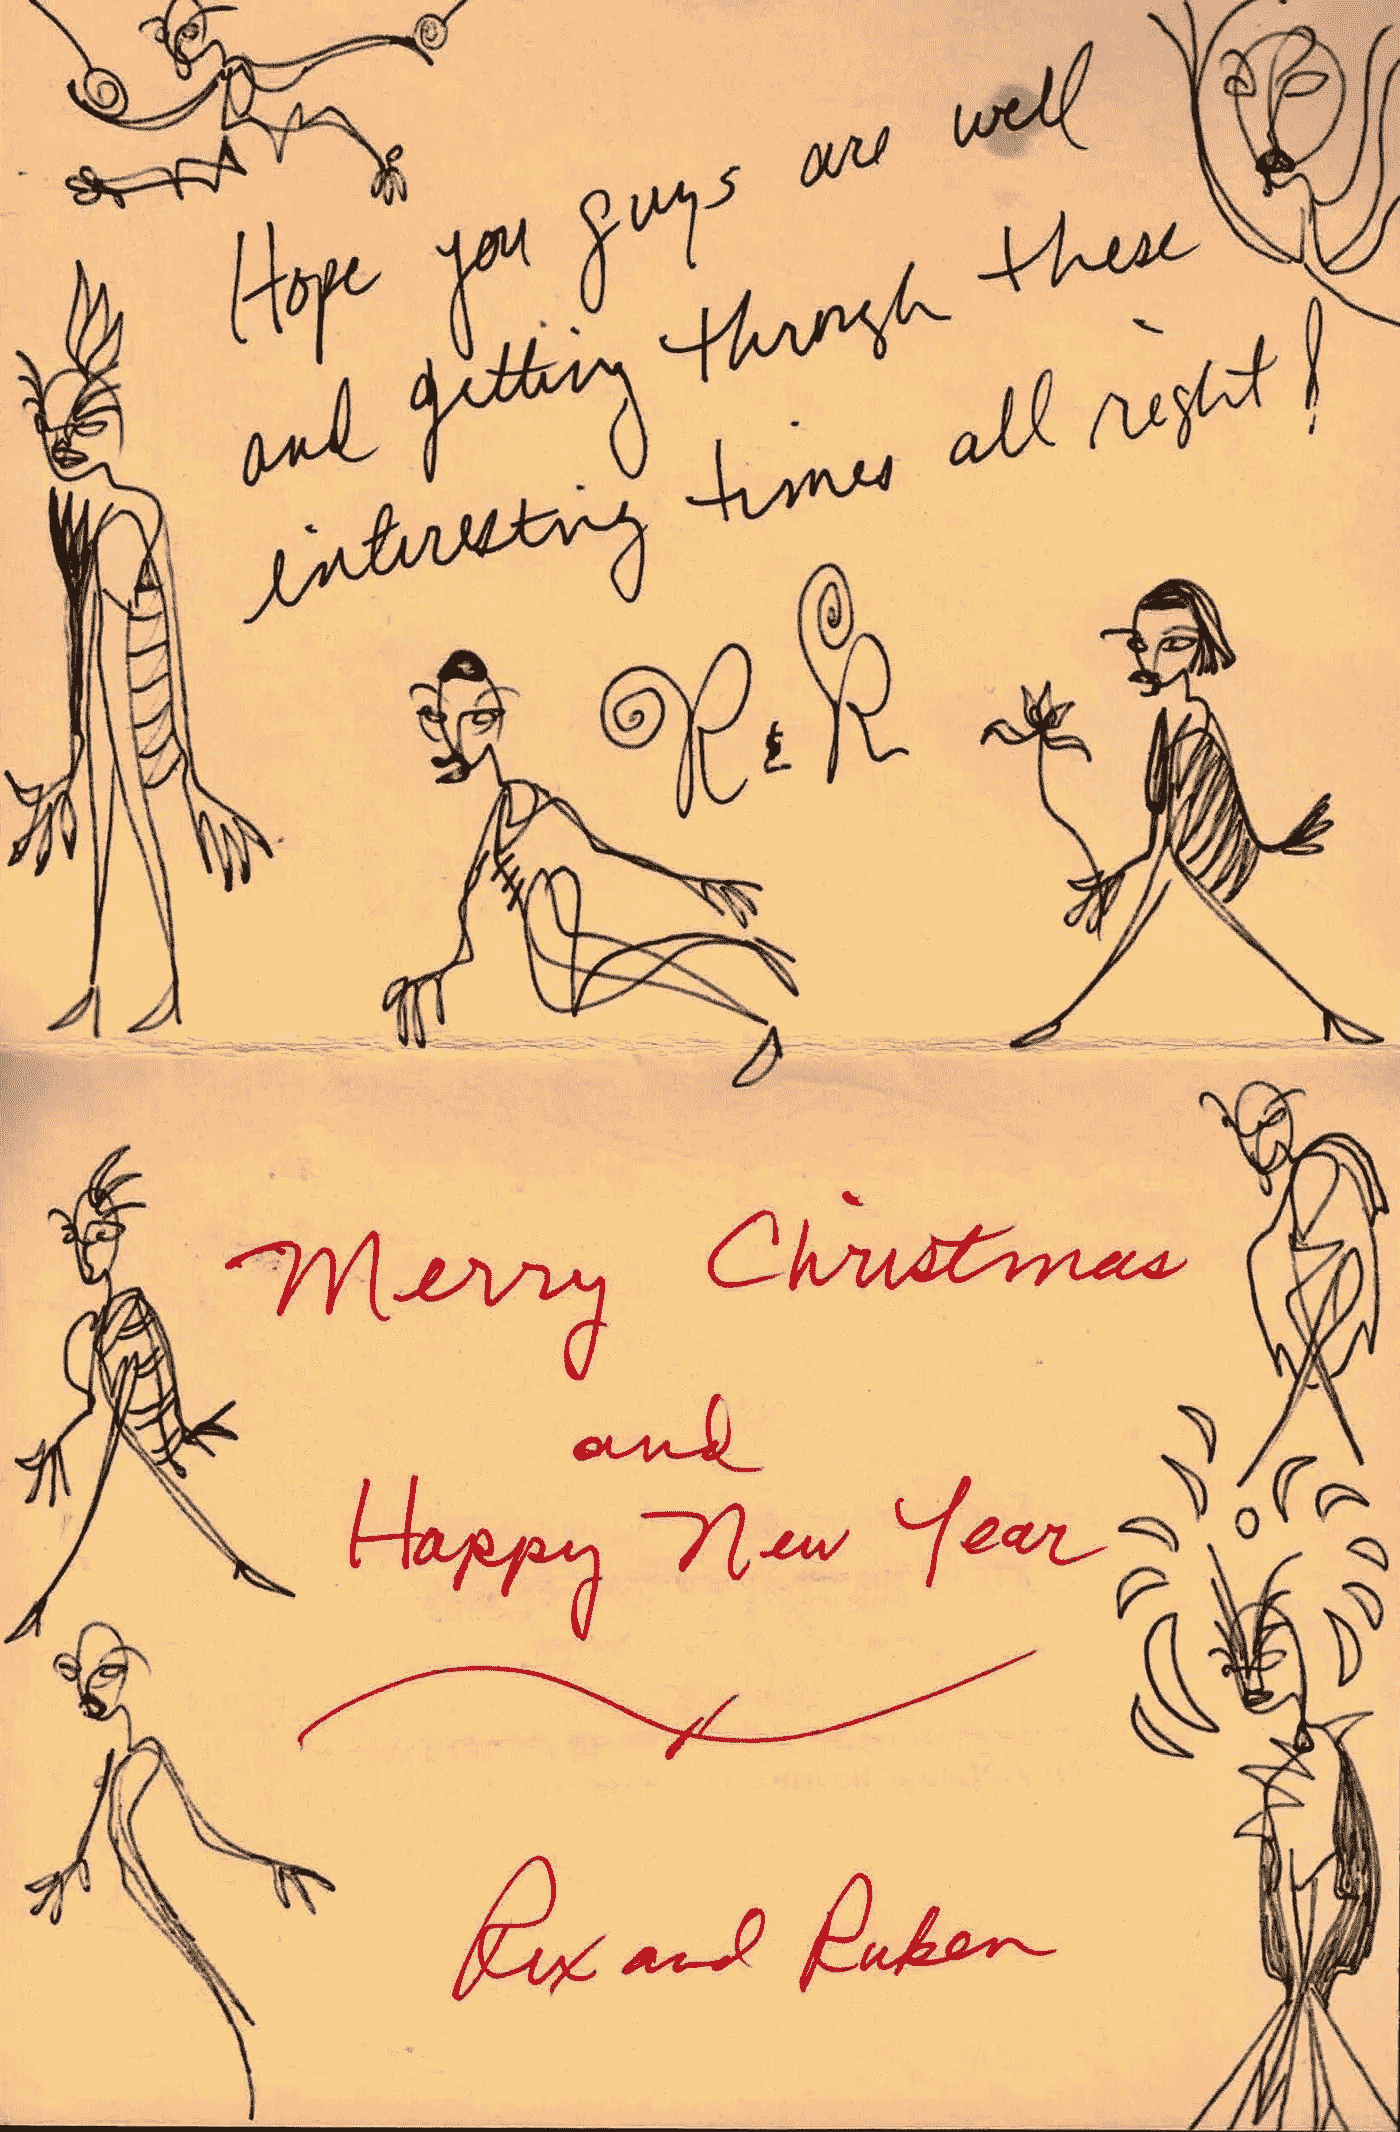 Hope you guys are well
and getting through these
interesting times all right!
R & R
Merry Christmas
and
Happy New Year
Rix and Ruben